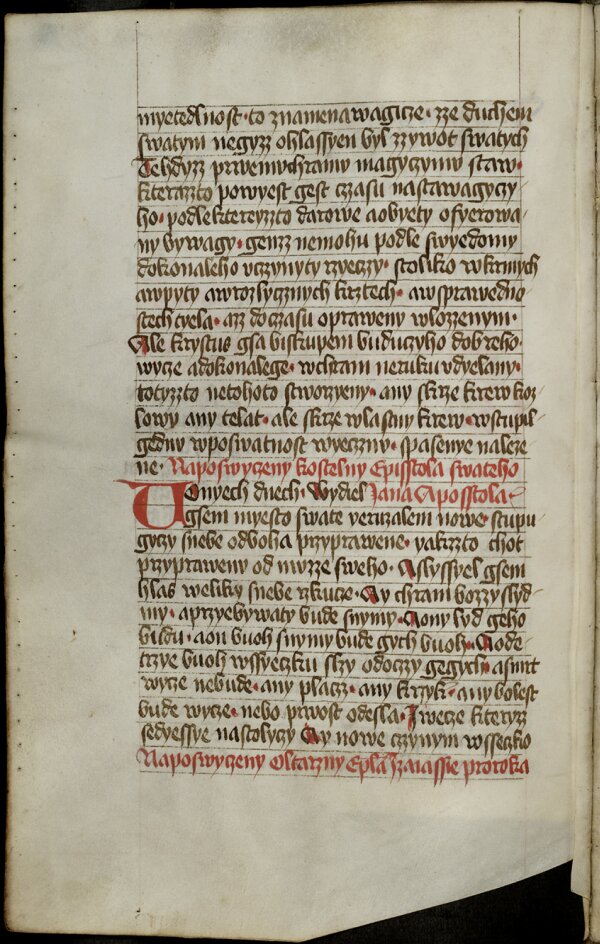 myetedlnost · to znamenawagicze · zze duchem
swatym negyzz ohlassyen byl zzywot swatych
Tehdyzz prwemuchramu magyczymu staw ·
kterazzto powyest gest czasu nastawagyczy
ho · podlektereyzzto darowe aobyety ofyerowa
ny bywagy · genzz nemohu podle swyedomy
dokonaleho vczynyty rzyeczy · stoliko wkrmych
awpyty awrozlycznych krztech · awsprawedno
stech tyela · azz doczasu opraweny wlozzenym ·
Ale krystus gsa biskupem buduczyho dobreho ·
wycze adokonalege · wchram neruku vdyelany ·
totyzzto netohoto stworzyeny · any skrze krew koz
lowy any telat · ale skrze wlastny krew · wstupil
gednu wposwatnost wyecznu · spasenye nalcze
ne · Naposwyczeny kostelny Episstola swateho
Vonyech dnech · Wydiel Jana Aposstola
gsem myesto swate yeruzalem nowe · stupu
gyczy snebe odboha przyprawene · yakzzto chot
przyprawena od muzze sweho · Aslyssyel gsem
hlas weliky snebe rzkucze · Ay chram bozzy slyd
my · aprzyebywaty bude snymy · Aony lyd geho
budu · aon buoh snymy bude gych buoh · Aode
trzye buoh wssyeczku slzy odoczy gegych · asmrt
wycze nebude · any placz · any krzyk · any bolest
bude wycze · nebo prwost odesla · Iwecze kteryzz
sedyessye nastolyczy Ay nowe czynym wsseczko
Naposwyczeny Oltarzny Epla Yzaiassie proroka